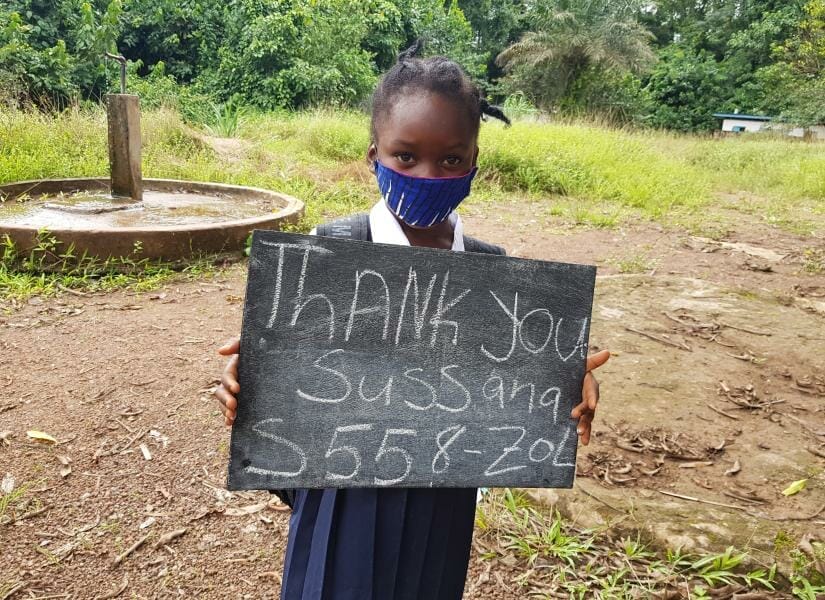 Thank you
Sussana
S558-Zol